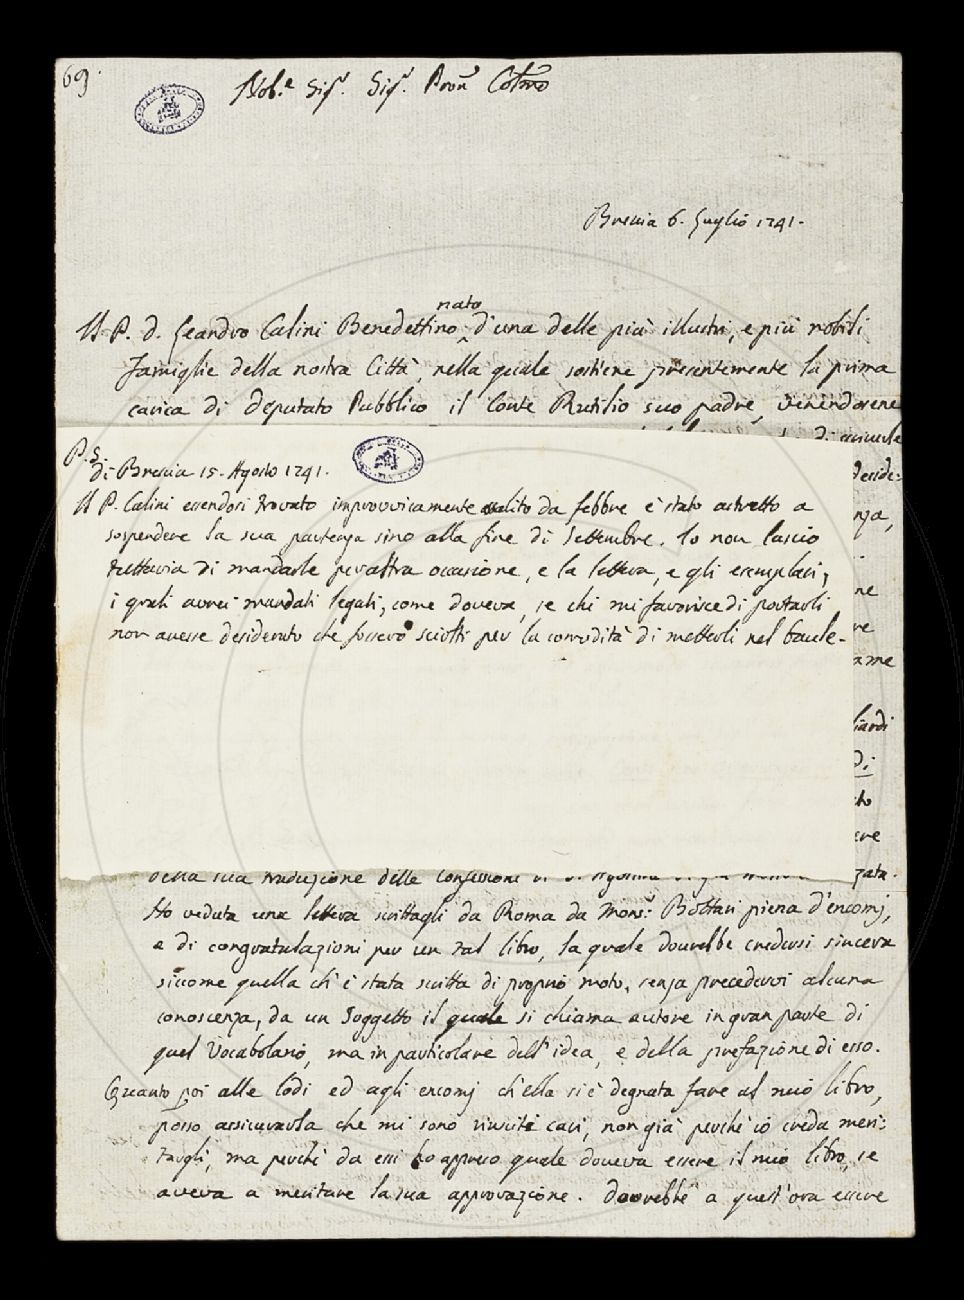 69.
Nob.e Sigr. Sigr. Pron Colmo
Brescia 6. Luglio 1741.
nato
Il P. D. Leandro Calini Benedettino d'una delle più illustri, e più nobili
famiglie della nostra Città, nella quale sostiene presentemente la prima
carica di deputato Pubblico il Conte Rutilio suo padre, venendosene
di
P.S.
di Brescia 15. Agosto 1741.
Il P. Calini essendosi trovato improvvisamente assalito da febbre è stato astretto a
sospendere la sua partenza sino alla fine di Settembre. Io non lascio
tuttavia di mandarle per altra occasione, e la lettera, e gli esemplari;
i quali avrei mandati legati, come doveva, se chi mi favorisce di portarli
non avesse desiderato che fossero sciolti per la comodità di metterli nel baule.
della sua traduzione delle confessioni
Ho veduta una lettera scrittagli da Roma da Monsr. Bottari piena d'encomj,
e di congratulazioni per un tal libro, la quale dovrebbe credersi sincera
siccome quella ch'è stata scritta di proprio moto, senza precedervi alcuna
conoscenza, da un Soggetto il quale si chiama autore in gran parte di
quel Vocabolario, ma in particolare dell'idea, e della prefazione di esso.
Quanto poi alle lodi ed agli encomj ch'ella si è degnata fare al mio libro,
posso assicurarla che mi sono riuscite cari, non già perchè io creda meri:
targli, ma perchè da essi ho appreso quale doveva essere il mio libro, se
aveva a meritare la sua approvazione. Dovrebbe a quest'ora essere